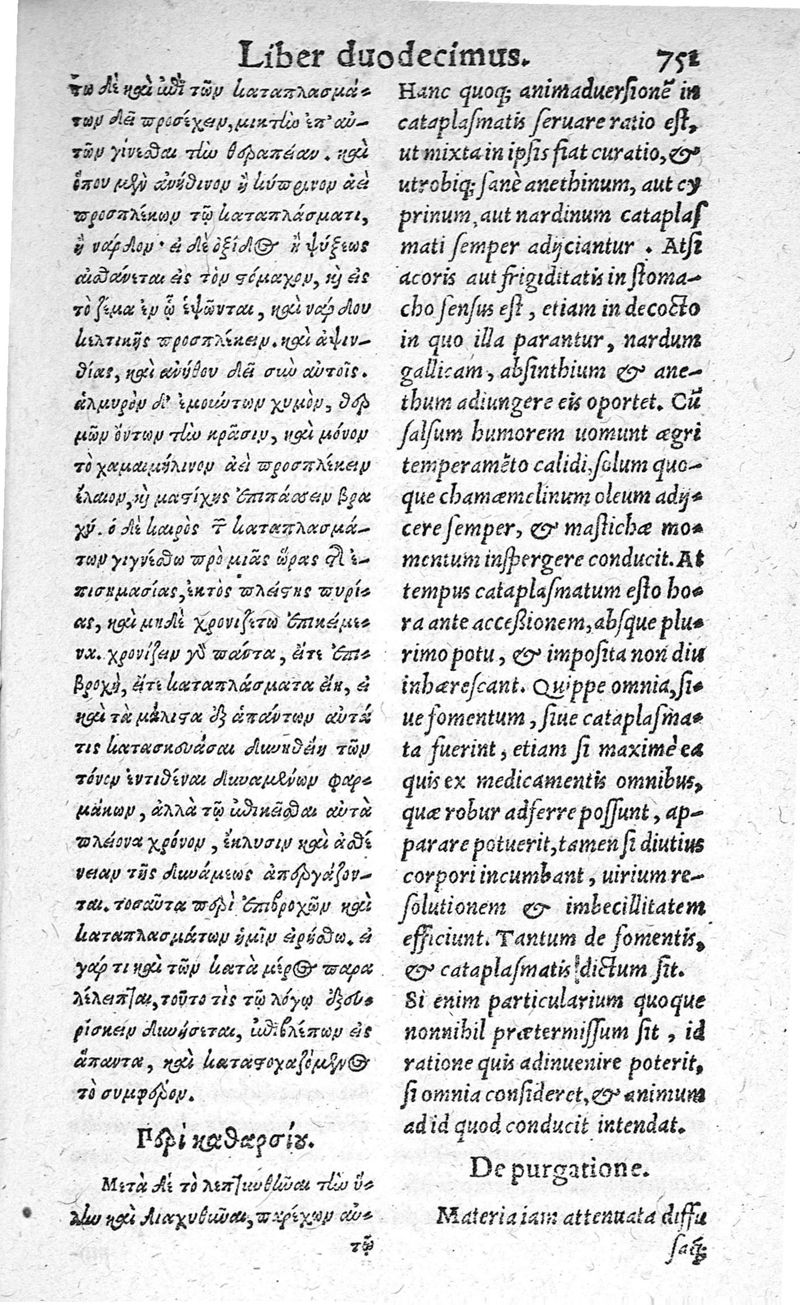 Liber duodecimus. 751
τω δὲ καὶ ἐπὶ τῶν καταπλασμά-
των δεῖ προσέχειν, μικτὴν ἐπ' αὐ-
τῶν γίνεσθαι τὴν θεραπείαν. καὶ
ὅπου μὲν ἀνήθινον ἢ κύπρινον ἀεὶ
προσπλέκων τῷ καταπλάσματι,
ἢ νάρδον· εἰ δὲ ὀξίδος ἢ ψύξεως
αἰσθάνεται εἰς τὸν στόμαχον, κὴ εἰς
τὸ ζέμα ἐν ᾧ ἑψῶνται, καὶ νάρδου
κελτικῆς προσπλέκειν. καὶ ἀψιν-
θίας, καὶ ἀνήθου δεῖ σὺν αὐτοῖς.
ἁλμυρὸν δ' ἐμοιώτων χυμὸν, θερ
μῶν ὄντων τὴν κρᾶσιν, καὶ μόνον
τὸ χαμαιμήλινον ἀεὶ προσπλέκειν
ἔλαιον, κὴ μαστίχης ἐπιπάσσειν βρα
χύ. ὁ δὲ καιρὸς τῶν καταπλασμά-
των γιγνέσθω πρὸ μιᾶς ὥρας τῆς ἐ-
πισημασίας, ἐκτὸς πλείστης πυρί-
ας, καὶ μηδὲ χρονιζέτω ἐπικείμε-
να. χρονίζειν γὸ πάντα, εἴτε ἐπι-
βροχὴ, εἴτε καταπλάσματα εἴη, εἰ
καὶ τὰ μάλιστα ἐξ ἁπάντων αὐτά
τις κατασκευάσαι δυνηθείη τῶν
τόνον ἐντιθέναι δυναμένων φαρ-
μάκων, ἀλλὰ τῷ ἐπικεῖσθαι αὐτὰ
πλείονα χρόνον, ἔκλυσιν καὶ ἀσθέ
νειαν τῆς δυνάμεως ἀπεργάζον-
ται. τοσαῦτα περὶ ἐπιβροχῶν καὶ
καταπλασμάτων ἡμῖν εἰρήσθω. εἰ
γάρ τι καὶ τῶν κατὰ μέρος παρα
λέλειπται, τοῦτο τὶς τῷ λόγῳ ἐξευ-
ρίσκειν δυνήσεται, ἐπιβλέπων εἰς
ἅπαντα, καὶ καταστοχαζόμενος
τὸ συμφέρον.
Περὶ καθαρσίου.
Μετὰ δὲ τὸ λεπτυνθῆναι τὴν ὕ-
λην καὶ διαχυθῆναι, παρέχων αὐ-
τῷ
Hanc quoq; animaduersionē in
cataplasmatis seruare ratio est,
ut mixta in ipsis fiat curatio, &
utrobiq; sanè anethinum, aut cy
prinum, aut nardinum cataplas
mati semper adijciantur. At si
acoris aut frigiditatis in stoma-
cho sensus est, etiam in decocto
in quo illa parantur, nardum
gallicam, absinthium & ane-
thum adiungere eis oportet. Cũ
salsum humorem uomunt ægri
temperamēto calidi, solum quo-
que chamæmelinum oleum adij-
cere semper, & mastichæ mo-
mentum inspergere conducit. At
tempus cataplasmatum esto ho-
ra ante accessionem, absque plu
rimo potu, & imposita non diu
inhærescant. Quippe omnia, si-
ue fomentum, siue cataplasma-
ta fuerint, etiam si maximè ea
quis ex medicamentis omnibus,
quæ robur adferre possunt, ap-
parare potuerit, tamen si diutius
corpori incumbant, uirium re-
solutionem & imbecillitatem
efficiunt. Tantum de fomentis,
& cataplasmatis dictum sit.
Si enim particularium quoque
nonnihil prætermissum sit, id
ratione quis adinuenire poterit,
si omnia consideret, & animum
ad id quod conducit intendat.
De purgatione.
Materia iam attenuata diffu
saq;